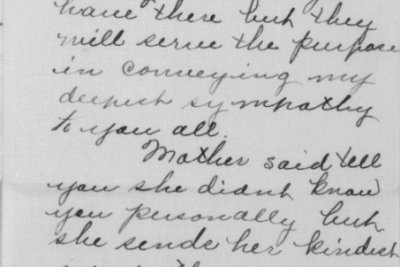 have there but they
will serve the purpose
in conveying my
deepest sympathy
to you all.
Mother said tell
you she didnt know
you personally but
she sends her kindest